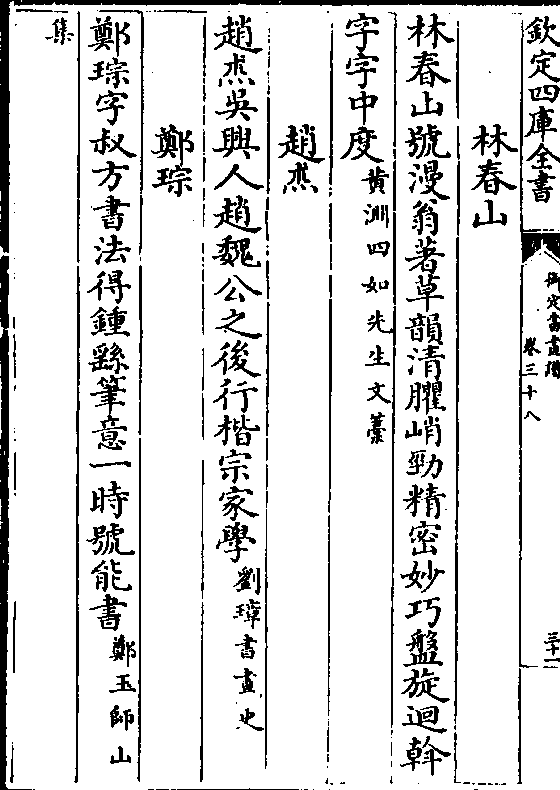 欽定四庫全書
御定書畫譜
卷三十八
三十一
林春山
林春山號漫翁著草韻清臞峭勁精密妙巧盤旋迴斡
字字中度黄淵四如先生文藁
趙㷩
趙㷩吳興人趙魏公之後行楷宗家學劉璋書畫史
鄭琮
鄭琮字叔方書法得鍾繇筆意一時號能書鄭玉師山
集